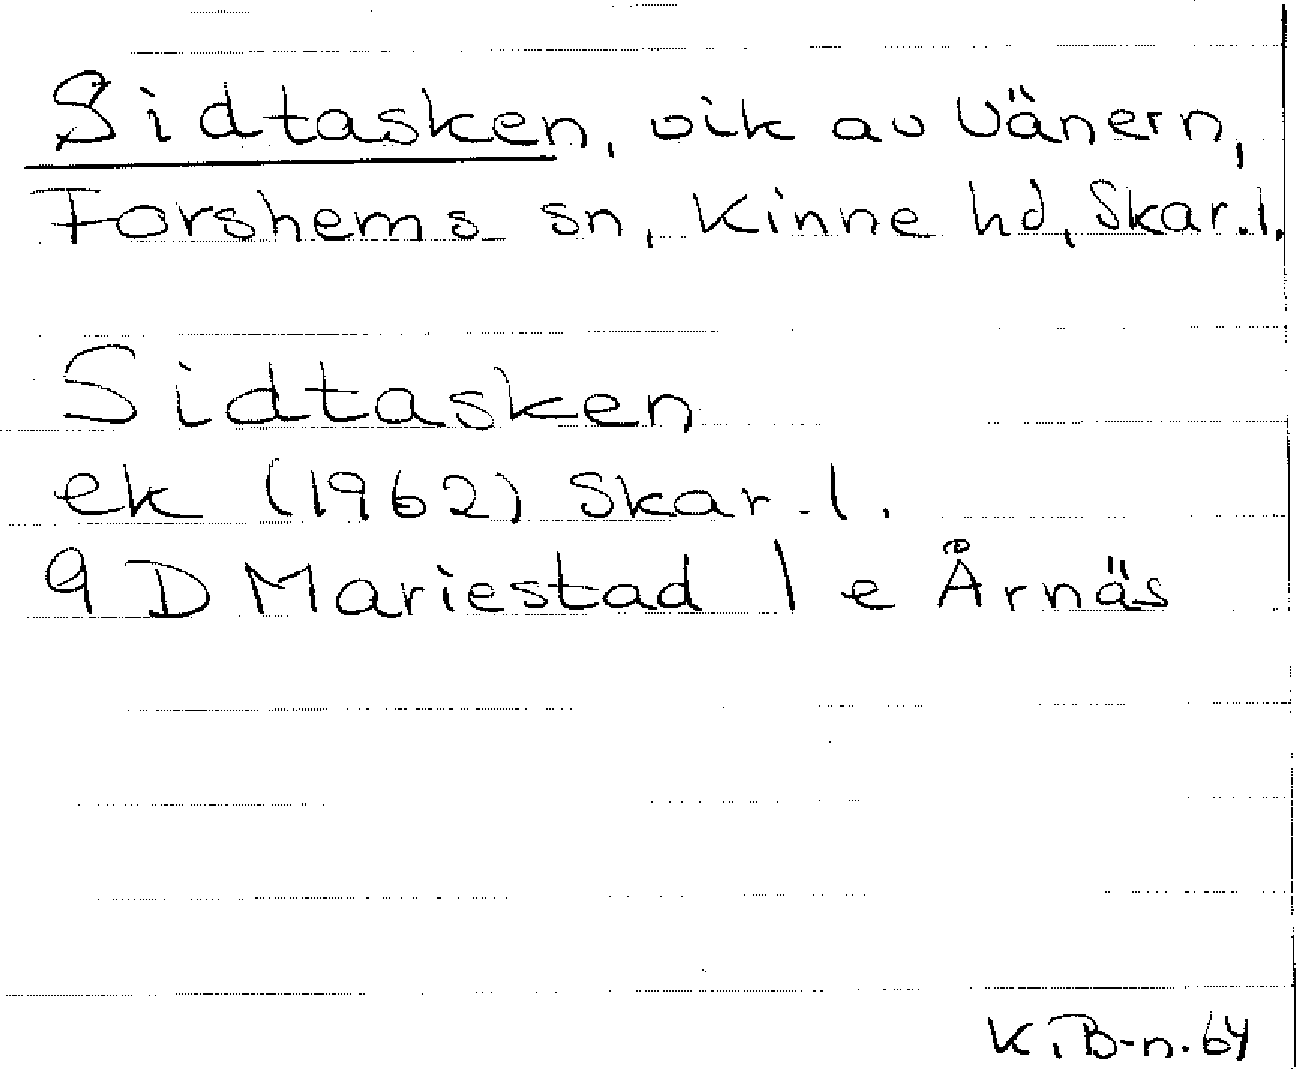 Sidtasken, vik av Vänern,
Forshems sn, Kinne hd, Skar.l.
Sidtasken
ek (1962) Skar.l.
9 D Mariestad 1 e Årnäs
K.B-n.64